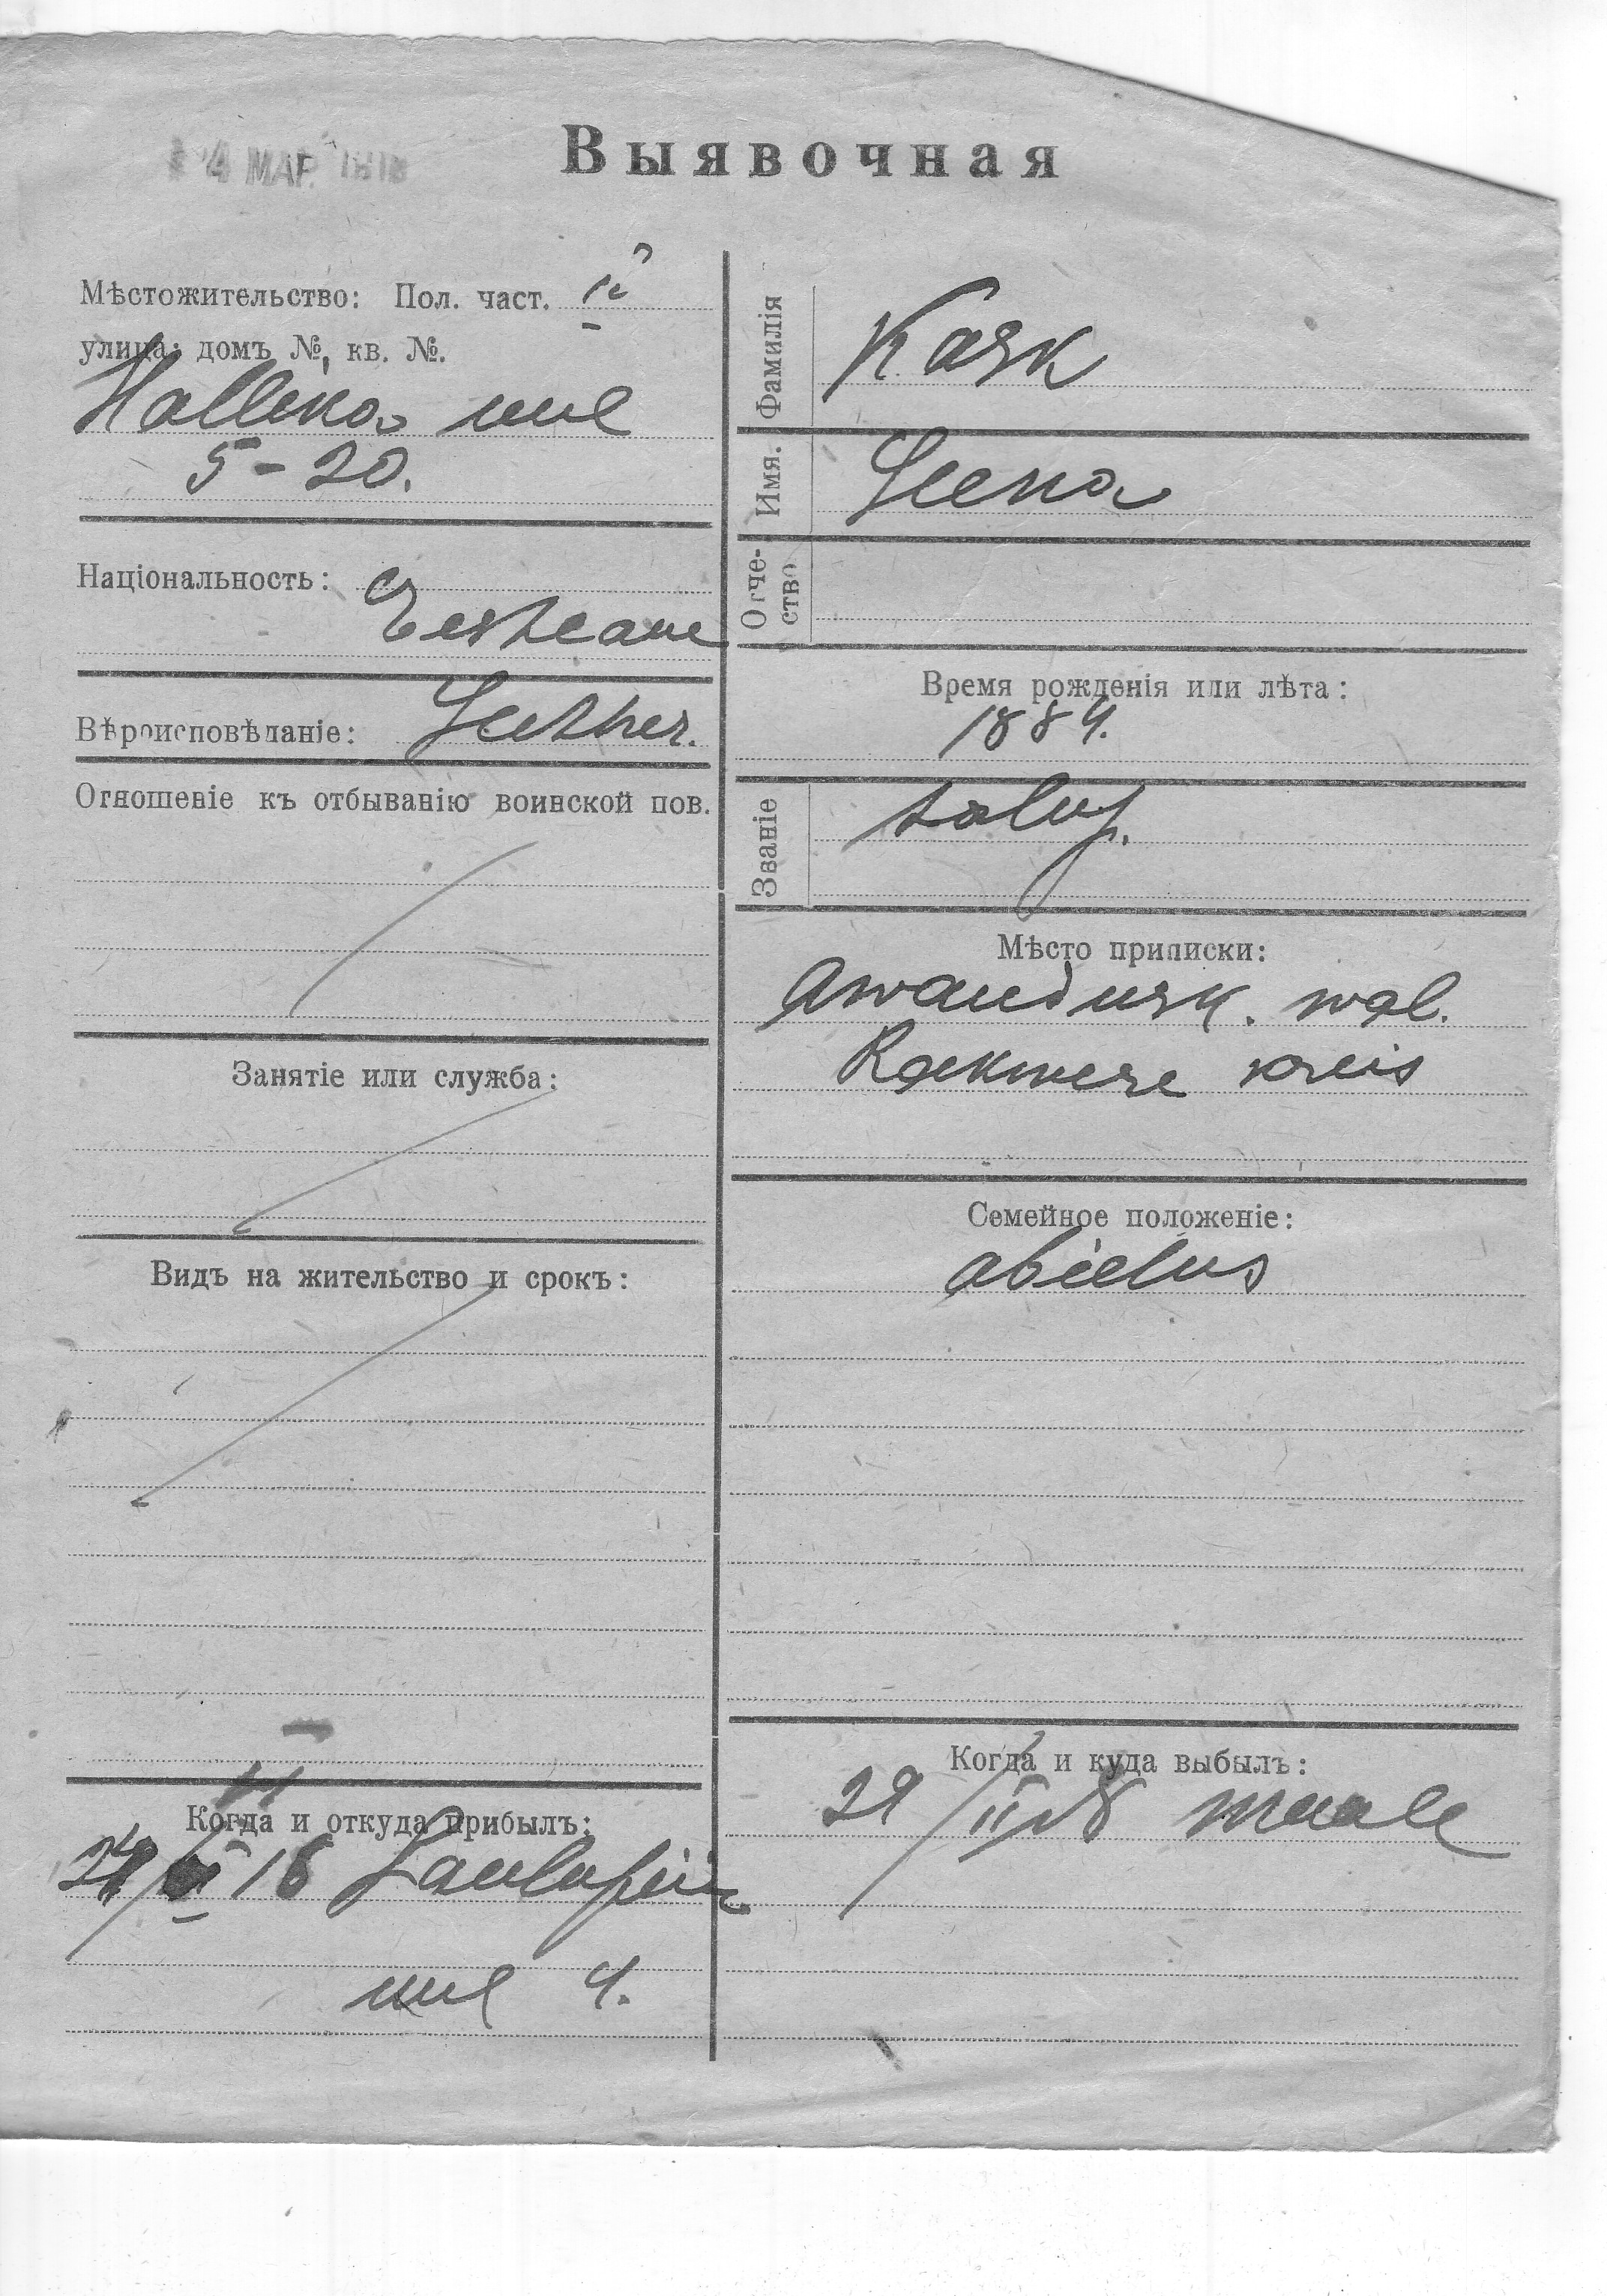 4 МАР. 1918
Выявочная
Мѣстожительство: Пол. част.
улица; домъ №, кв. №.
uul
5-20.
Національность:
Eestlane
Вѣроисповѣданіе: Luther.
Отношеніе къ отбыванію воинской пов.
Занятіе или служба:
Видъ на жительство и срокъ:
Когда и откуда прибылъ:
18
uul 4.
Фамилія
Kask
Имя.
Leena
Отче-
ство
Время рожденія или лѣта:
1884.
Званіе
talup.
Мѣсто приписки:
Awandusk. wal.
Rakwere kreis
Семейное положеніе:
abielus
Когда и куда выбылъ:
29/II 18 maale